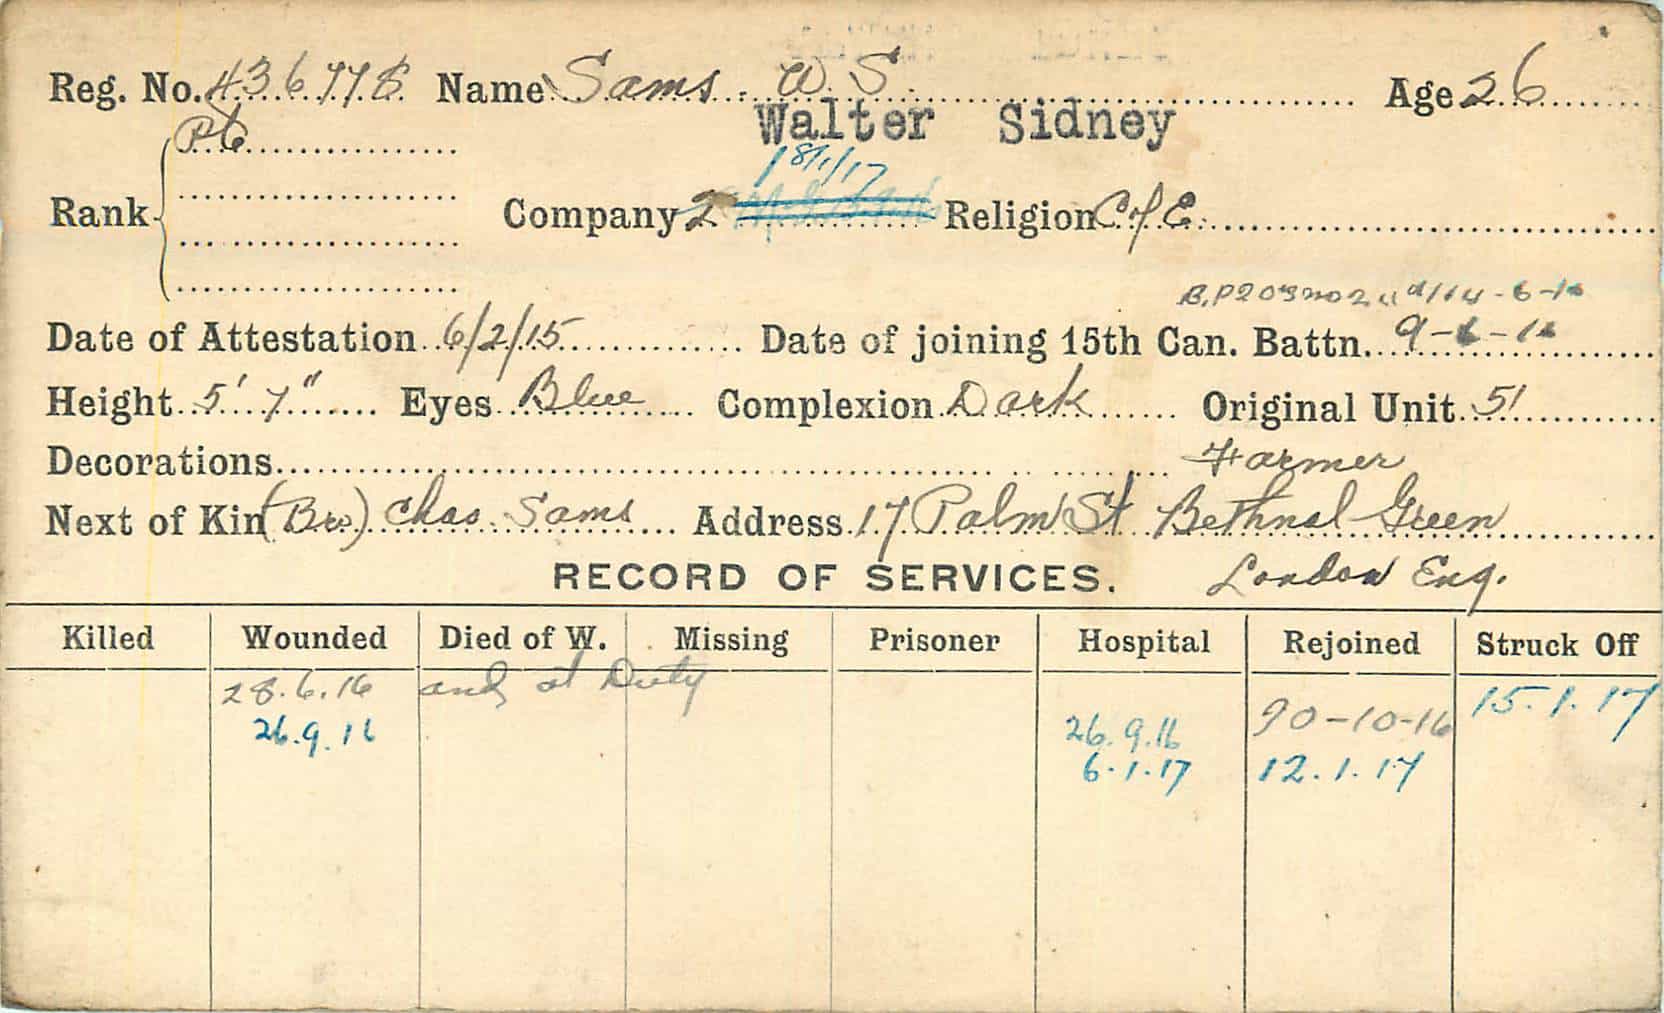 Reg. No. 436778 Name Sams. W. S. Age 26
Pte
Walter Sidney
18/1/17
Rank Company 2 Religion C of E.
14-6-16
Date of Attestation 6/2/15 Date of joining 15th Can. Battn. 9-6-16
Height 5' 7" Eyes Blue Complexion Dark Original Unit 51
Decorations Farmer
Next of Kin (Bro) Chas. Sams Address 17 Palm St Bethnal Green
RECORD OF SERVICES. London Eng.
Killed Wounded Died of W. Missing Prisoner Hospital Rejoined Struck Off
28.6.16 and at Duty 15.1.17
26.9.16 26.9.16 20-10-16
6.1.17 12.1.17